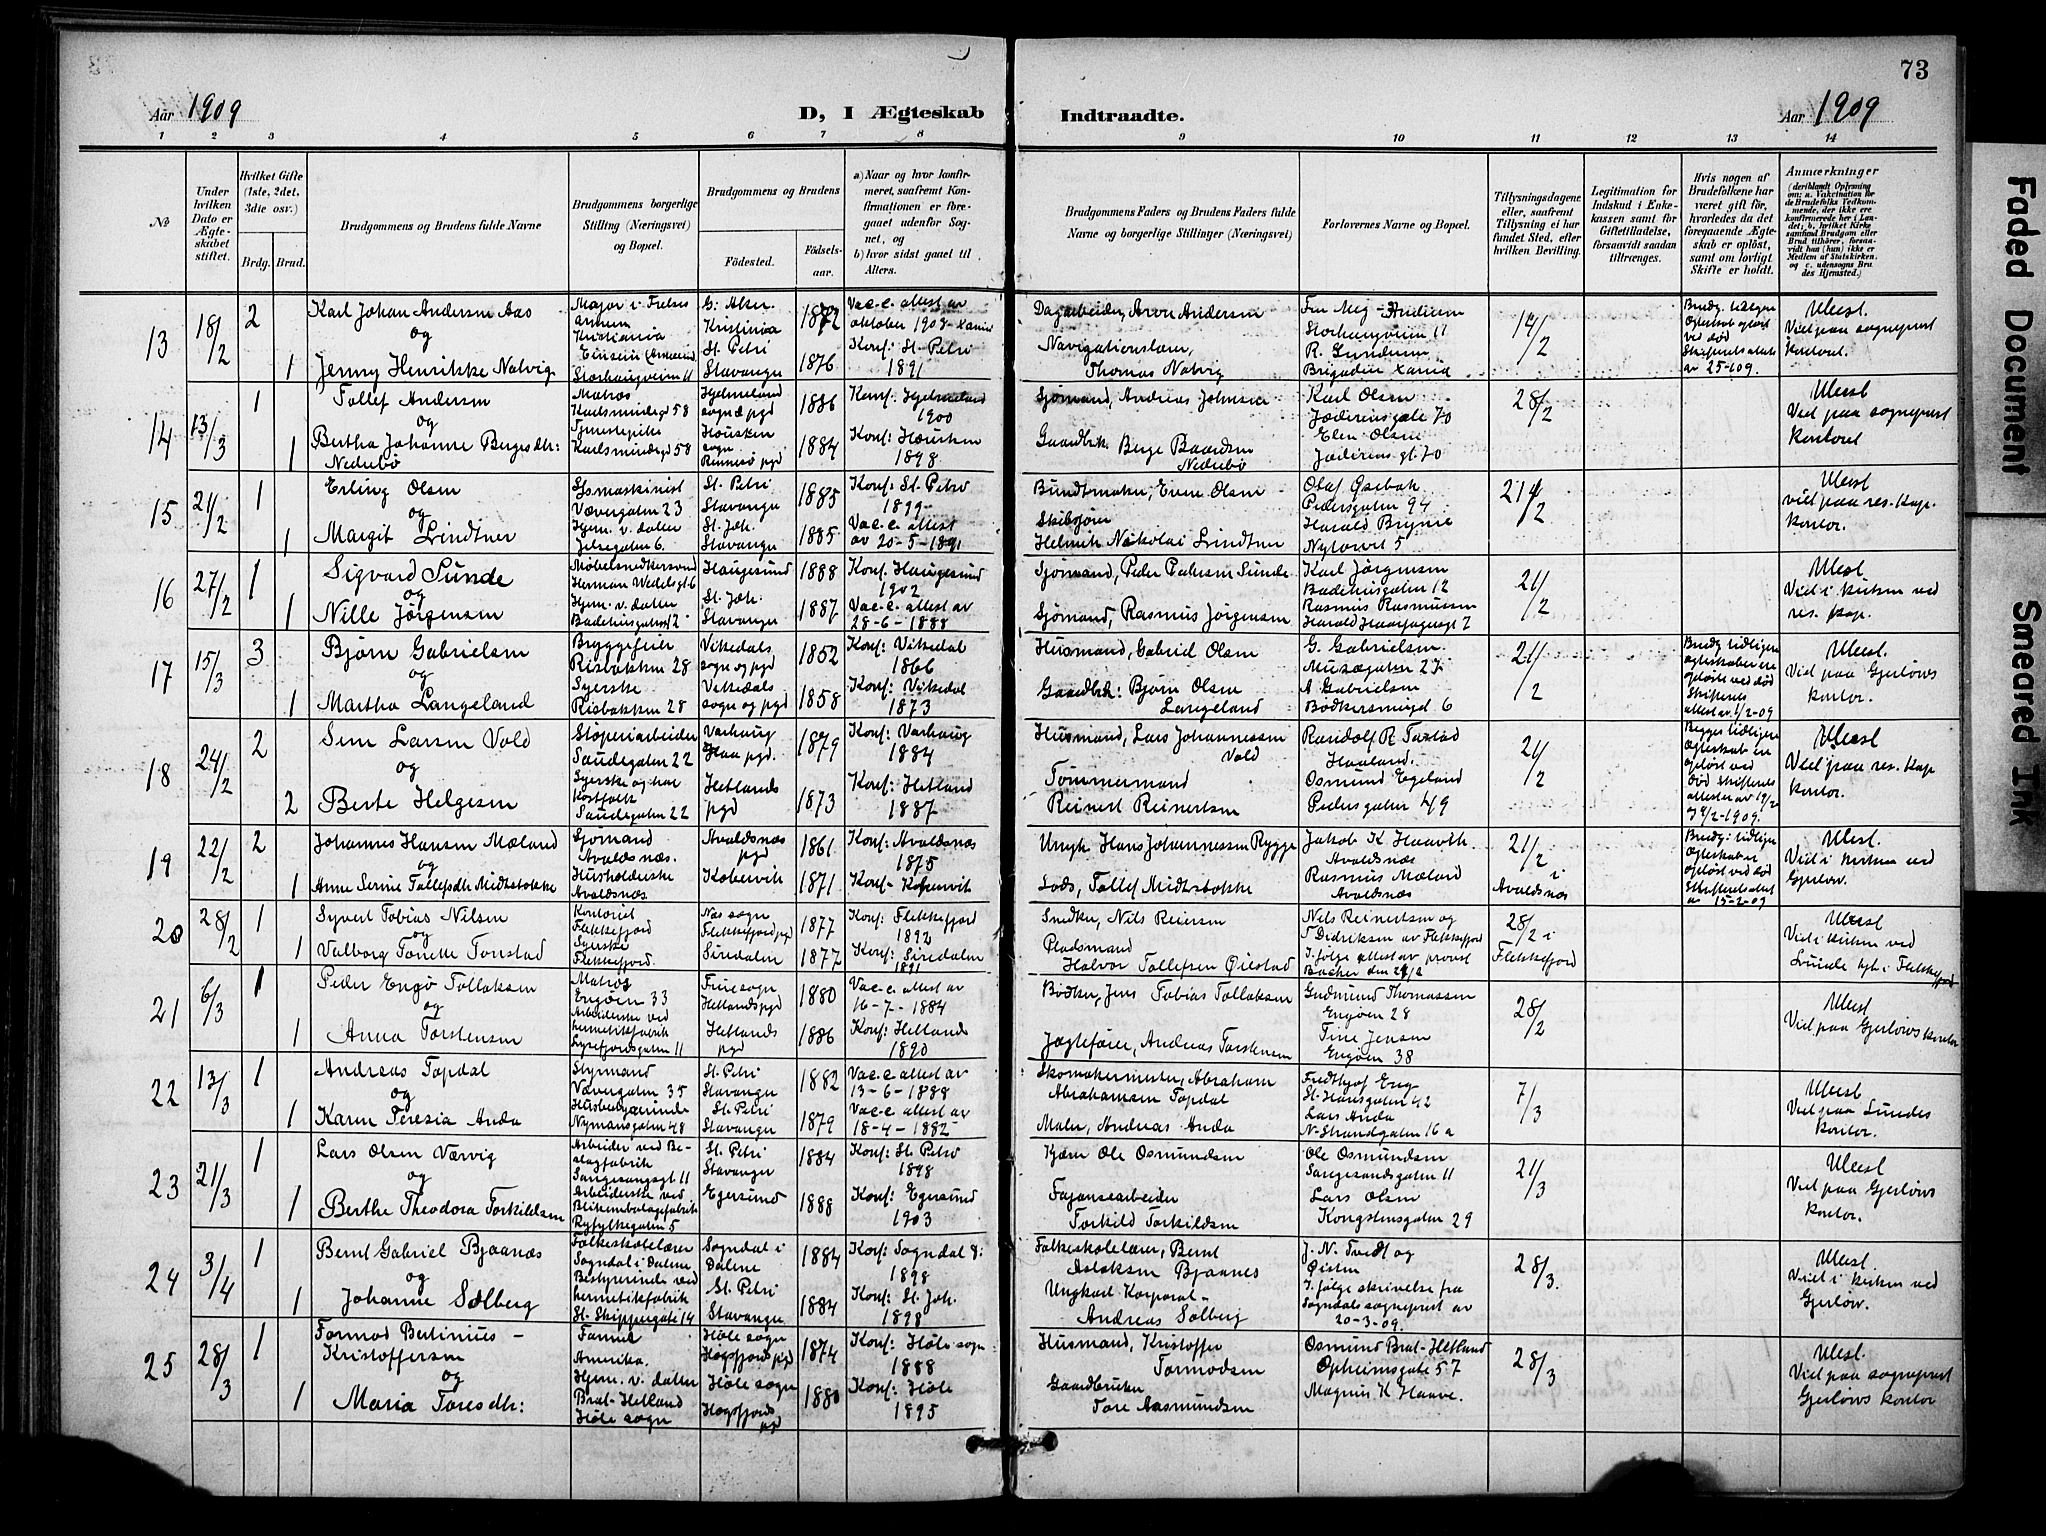 73
Aar 1909
D, I Ægteskab
Indtraadte.
Aar 1909
1 2 3 4 5 6 7 8 9 10 11 12 13 14
No
Under hvilken Dato er Ægteskabet stiftet.
Hvilket Gifte (1ste, 2det, 3die osv.)
Brdg. Brud.
Brudgommens og Brudens fulde Navne
Brudgommens borgerlige Stilling (Næringsvei) og Bopæl.
Brudgommens og Brudens
Födested.
Födselsaar.
a) Naar og hvor konfirmeret, saafremt Konfirmationen er foregaaet udenfor Sognet, og
b) hvor sidst gaaet til Alters.
Brudgommens Faders og Brudens Faders fulde Navne og borgerlige Stillinger (Næringsvei)
Forlovernes Navne og Bopæl.
Tillysningsdagene eller, saafremt Tillysning ei har fundet Sted, efter hvilken Bevilling.
Legitimation for Indskud i Enkekassen samt for Giftetilladelse, forsaavidt saadan tiltrænges.
Hvis nogen af Brudefolkene har været gift för, hvorledes da det foregaaende Ægteskab er oplöst, samt om lovligt Skifte er holdt.
Anmærkninger
13 18/2 2 Karl Johan Andersen Aas
og
1 Jenny Henrikke Natvig
Kristiania
Storhaugveien 11
Kristiania 1872
St. Petri Stavanger 1876
Konf: St. Petri 1891
Dagarbeider, Aron Andersen
Thomas Natvig
Storhaugveien 11
14/2
14 13/3 1 Tollef Andersen
og
1 Bertha Johanne Bergesdtr: Nederbö
Matros
Karlsmindegd 58
Tjenestepike
Karlsmindegd 58
Hjelmeland sogn & pgd 1886
Housken sogn Rennesö pgd 1884
Konf: Hjelmeland 1900
Konf: Housken 1898
Sjømand, Andreas Johnsen
Gaardbr. Berge Baardsen Nederbö
Karl Olsen
Jæderensgate 70
Elen Olsen
Jæderensgt. 70
28/2
Viet paa sogneprest kontoret
15 21/2 1 Erling Olsen
og
1 Margit Lindtner
Vævergaten 23
Hjem. v. datter
Jelsegaten 6.
St. Petri Stavanger 1885
St. Joh. Stavanger 1885
Konf: St. Petri 1899
Vac. c. attest av 20-5-1891
Bundtmaker, Even Olsen
Helmik Nikolai Lindtner
Olaf Øsebak
Pedersgaten 94
Harald Bryne
Nytorvet 5
Viet paa res. kap. kontor.
16 27/2 1 Sigvard Sunde
og
1 Nille Jørgensen
Herman Wedelsgt. 6
Hjem. v. datter
Badehusgaten 12
Haugesund 1888
St. Joh. Stavanger 1887
Konf. Haugesund 1902
Vac. c. attest av 28-6-1888
Sjømand, Peder Pedersen Sunde
Sjømand, Rasmus Jørgensen
Karl Jørgensen
Badehusgaten 12
Rasmus Rasmussen
Harald Haarfagersgt 7
21/2
Viet i kirken ved res. kap.
17 15/3 3 Bjørn Gabrielsen
og
1 Martha Langeland
Bryggefeier
Risbakken 28
Syerske
Risbakken 28
Vikedals sogn og pgd 1852
Vikedals sogn og pgd 1858
Konf: Vikedal 1866
Konf: Vikedal 1873
Husmand, Gabriel Olsen
Gaardbr: Bjørn Olsen Langeland
G. Gabrielsen
Musegaten
A Gabrielsen
Bødkersmuget 6
21/2
Viet paa Gjerløws kontor.
18 24/2 2 Sem Larsen Vold
og
2 Berte Helgesen
Støperiarbeider
Saudegaten 22
Syerske og har Kostfolk
Saudegaten 22
Varhaug Haa pgd. 1879
Hetlands pgd 1873
Konf: Varhaug 1884
Konf: Hetland 1887
Husmand, Lars Johannessen Vold
Tømmermand
Reinert Reinertsen
Randolf R. Tastad
Haaland.
Osmund Egeland
Pedersgaten 49
21/2
Viet paa res. kap kontor.
19 22/2 2 Johannes Hansen Mæland
og
1 Anne Serine Tollefsdtr Midtstokke
Sjømand
Avaldsnæs.
Husholderske
Avaldsnæs
Avaldsnæs pgd 1861
Kobervik 1871
Konf: Avaldsnæs 1875
Konf- Kopervik
Hans Johannessen Rygge
Lods, Tollef Midtstokke
Jakob K Haavth.
Avaldsnæs
Rasmus Mæland
Avaldsnæs
21/2 i Avaldsnæs
Viet i kirken ved Gjerløw.
20 28/2 1 Syvert Tobias Nilsen
og
1 Valborg Tonette Tonstad
Kontorist
Flekkefjord
Syerske
Flekkefjord.
Næs sogn Flekkefjord pgd 1877
Siredalen 1877
Konf: Flekkefjord 1892
Konf: Siredalen 1891
Snedker, Nils Reiersen
Pladsmand
Halvor Tollefsen Øiestad
Nils Reinertsen og
T Didriksen av Flekkefjord
I følge attest av provst
28/2 i Flekkefjord
Viet i kirken ved Lunde
21 6/3 1 Peder Engø Tollaksen
og
1 Anna Torstensen
Matros
Engøen 33
Arbeiderske ved hermetikfabrik
Lysefjordsgaten 11
Frue sogn Hetlands pgd 1880
Hetlands pgd 1886
Vac. c. attest av 16-7-1884
Konf: Hetland 1890
Bødker, Jens Tobias Tollaksen
Jagtefører, Andreas Torstensen
Gudmund Thomassen
Engøen 28
Tine Jensen
Engøen 38
28/2
Viet paa Gjerløws kontor
22 13/3 1 Andreas Topdal
og
1 Karen Teresia Anda
Styrmand
Vævergaten 35
Husbestyrerinde
Nymansgaten 48
St. Petri Stavanger 1882
St. Petri Stavanger 1879
Vac. c attest av 13-6-1888
Vac. c attest av 18-4-1882
Skomakermester, Abraham Abrahamsen Topdal
Maler, Andreas Anda
St. Hansgaten 42
Lars Anda
N-Strandgaten 16 a
7/3
Viet paa Lundes kontor.
23 21/3 1 Lars Olsen Værvig
og
1 Berthe Theodora Torkildsen
Arbeider ved Beslagfabrik
Arbeiderske ved Blikemballagefabrik
Ryfylkegaten 5
St. Petri Stavanger 1884
Egersund 1888
Konf: St. Petri 1898
Konf: Egersund 1903
Ole Osmundsen
Fajansearbeider
Torkild Torkildsen
Ole Osmundsen
Sangesandsgaten 11
Lars Olsen
Kongstensgaten 29
21/3
Viet paa Gjerløws kontor.
24 3/4 1 Bernt Gabriel Bjaanæs
og
1 Johanne Solberg
Folkeskolelærer
Sogndal i Dalene
Bestyrerinde ved hermetikfabrik
St. Skippergate 14
Sogndal i Dalene 1884
St. Petri Stavanger 1884
Konf: Sogndal 8: 1898
Konf: St. Joh. 1898
Folkeskolelærer, Bernt Aslaksen Bjaanes
Ungkarl Korporal-
Andreas Solberg
J. N. Tvedt og
I følge skrivelse fra
Sogndals sogneprest av
20-3-09.
28/3.
Viet i kirken ved Gjerløw.
25 28/3 1 Tormod Bertinius-Kristoffersen
og
1 Maria Toresdtr:
Farmer
Amerika.
Hjem. v. datter
Brat-Hetland
Høle sogn
Høle sogn Høgsfjords pgd 1874
Høle sogn Høgsfjords pgd 1880
Konf: Høle sogn 1888
Konf: Høle 1895
Husmand, Kristoffer Tormodsen
Gaardbruker
Tore Aasmundsen
Osmund Brat-Hetland
Opheimsgate 57
Magnus K Haave.
28/3
Viet paa sogneprest Gjerløws kontor
Faded Document
Smeared Ink